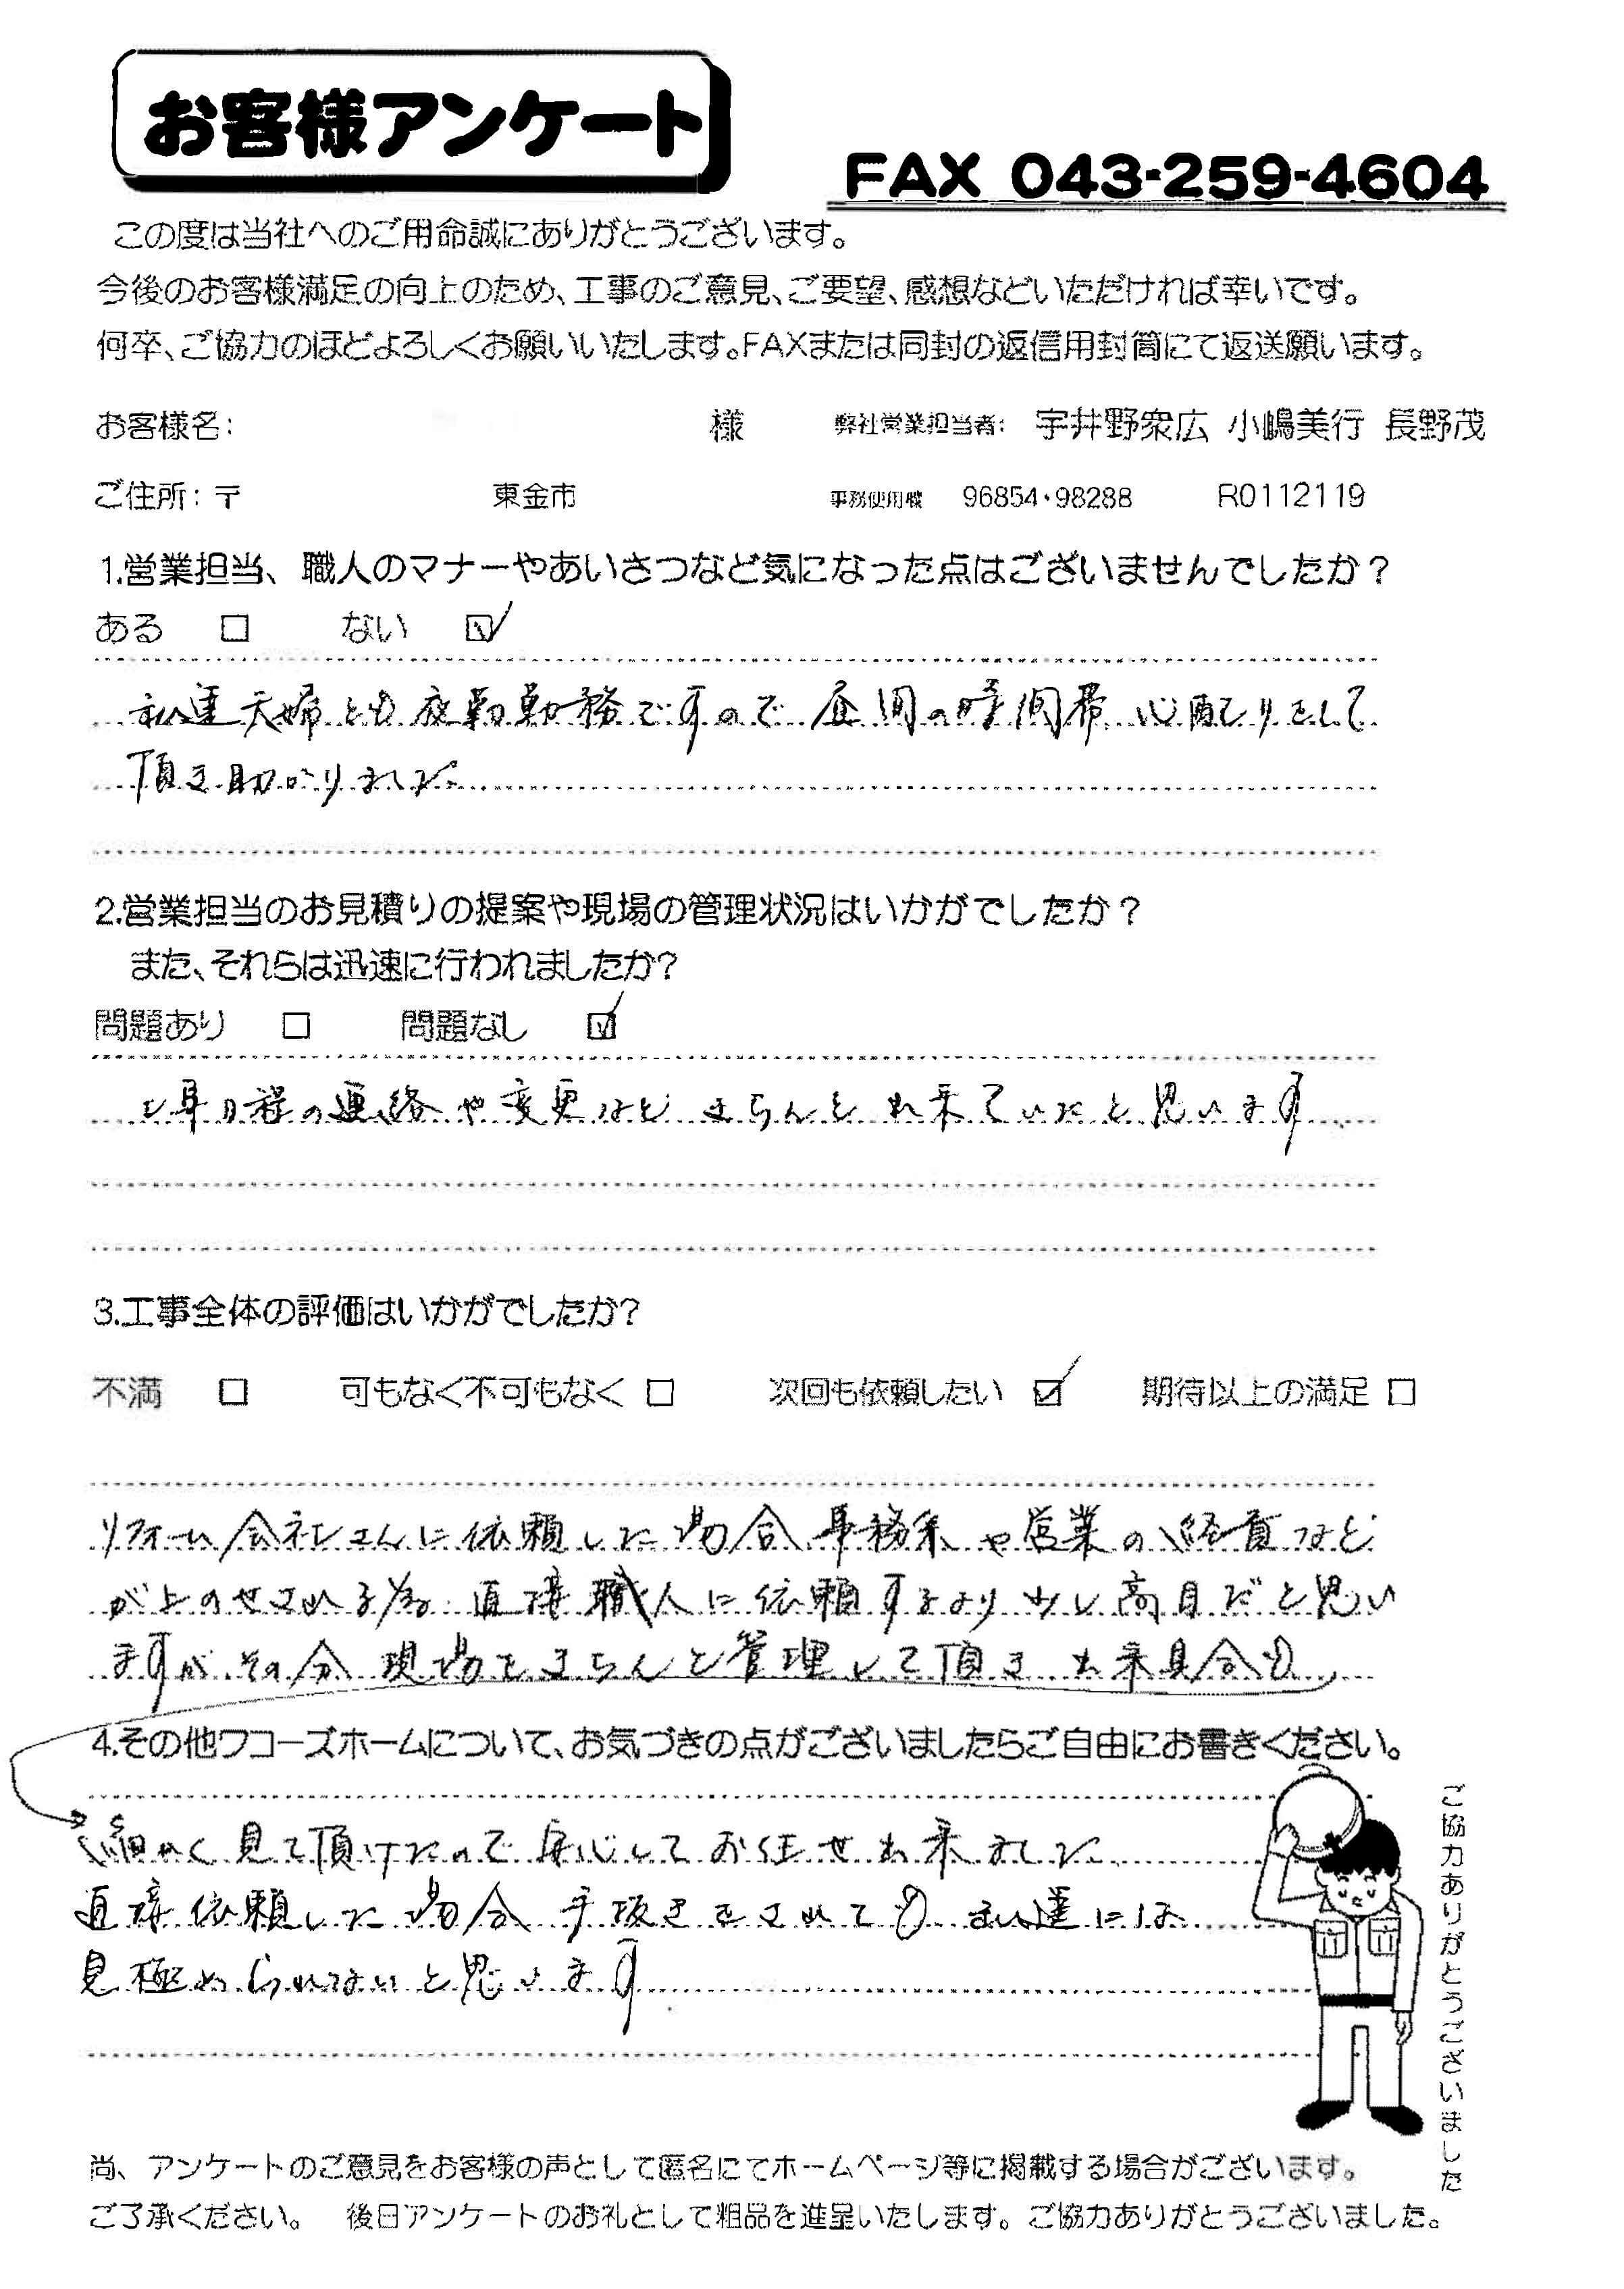 お客様アンケート
FAX 043-259-4604
この度は当社へのご用命誠にありがとうございます。
今後のお客様満足の向上のため、工事のご意見、ご要望、感想などいただければ幸いです。
何卒、ご協力のほどよろしくお願いいたします。FAXまたは同封の返信用封筒にて返送願います。
お客様名: 様 弊社営業担当者: 宇井野衆広 小嶋美行 長野茂
ご住所: 〒 東金市 事務使用欄 96854・98288 R0112119
1.営業担当、職人のマナーやあいさつなど気になった点はございませんでしたか?
ある □ ない ☑
私達夫婦とも夜勤勤務ですので昼間の時間帯 心配りをして
頂き助かりました
2.営業担当のお見積りの提案や現場の管理状況はいかがでしたか?
また、それらは迅速に行われましたか?
問題あり □ 問題なし ☑
工事日程の連絡や変更など きちんと出来ていたと思います
3.工事全体の評価はいかがでしたか?
不満 □ 可もなく不可もなく □ 次回も依頼したい ☑ 期待以上の満足 □
リフォーム会社さんに依頼した場合 事務系や営業の経費など
が上のせされる為 直接職人に依頼するより少し高目だと思い
ますが その分 現場をきちんと管理して頂き 出来具合も
4.その他ワコーズホームについて、お気づきの点がございましたらご自由にお書きください。
細かく見て頂けたので安心してお任せ出来ました
直接依頼した場合 手抜きをされても 私達には
見極められないと思います
ご協力ありがとうございました
尚、アンケートのご意見をお客様の声として匿名にてホームページ等に掲載する場合がございます。
ご了承ください。 後日アンケートのお礼として粗品を進呈いたします。ご協力ありがとうございました。